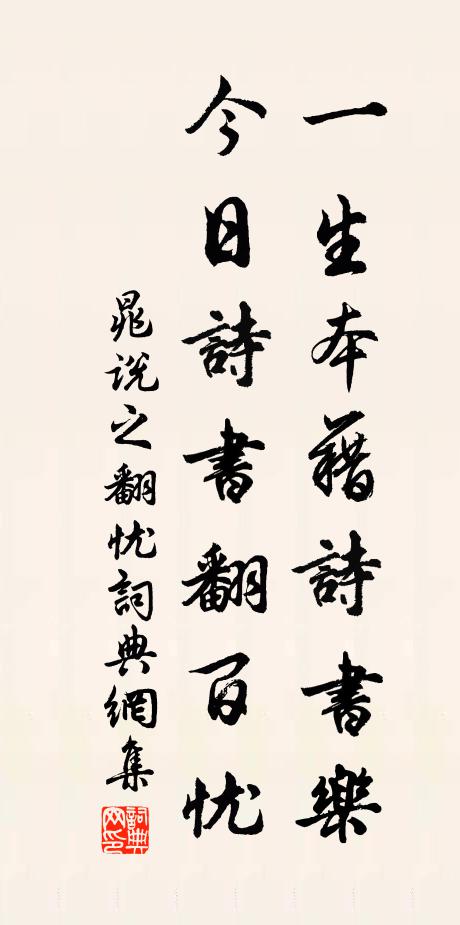 一生本藉詩書樂
今日詩書翻百忧
晁説之翻忧詞典網集
詞典網印